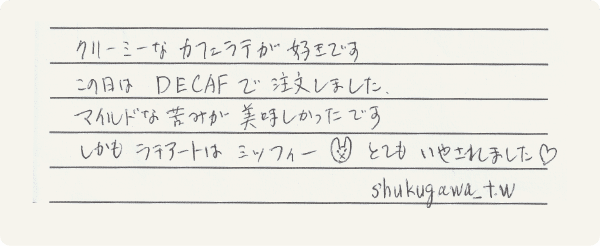 クリーミーな カフェラテが 好きです
この日は DECAFで 注文しました.
マイルドな 苦みが 美味しかったです
しかも ラテアートは ミッフィー とても いやされました♡
shukugawa_t.w